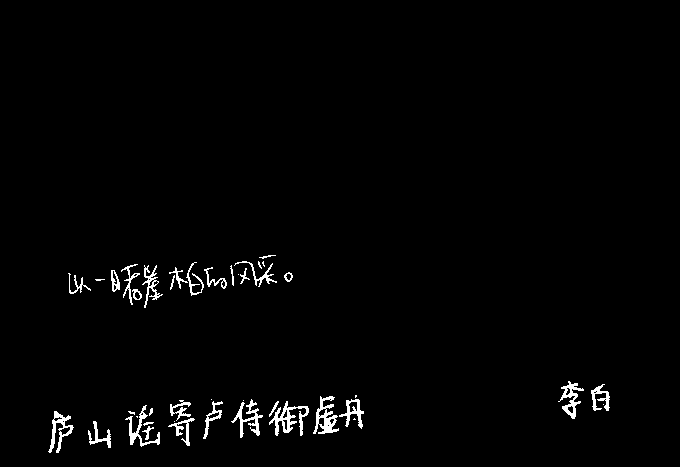 以一睹崖柏的风采。
庐山谣寄卢侍御虚舟 李白